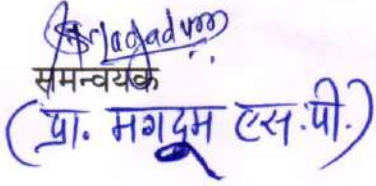 समन्वयक
(प्रा. मगदूम एस.पी.)